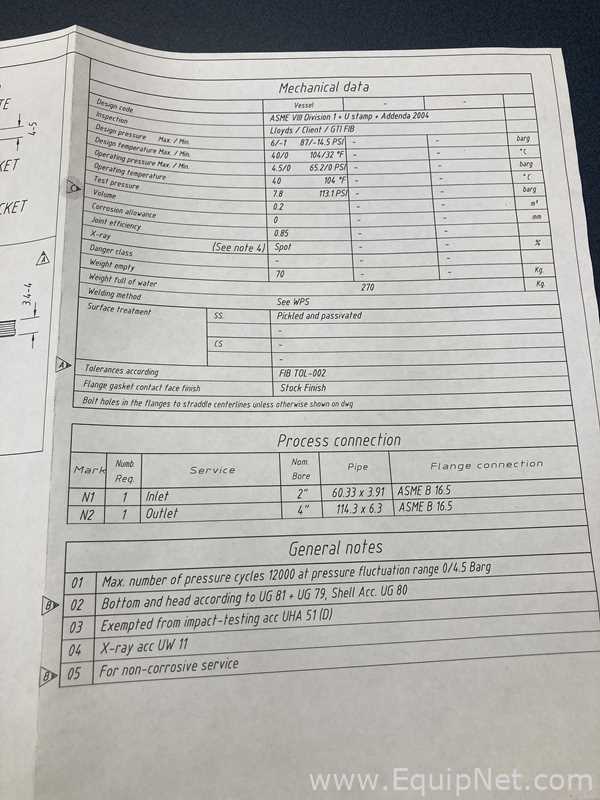 TE
4-5
KET
CKET
A
3.4-4
Mechanical data
Vessel - -
Design code ASME VIII Division 1 + U stamp + Addenda 2004
Inspection Lloyds / Client / GTI FIB
Design pressure Max. / Min. 6/-1 87/-14.5 PSI - - barg
Design temperature Max. / Min. 40/0 104/32 °F - - °C
Operating pressure Max. / Min. 4.5/0 65.2/0 PSI - - barg
Operating temperature 40 104 °F - - °C
C Test pressure 7.8 113.1 PSI - - barg
Volume 0.2 - - m³
Corrosion allowance 0 - - mm
Joint efficiency 0.85 - -
X-ray (See note 4) Spot - - %
Danger class - - -
Weight empty 70 - - Kg.
Weight full of water 270 Kg.
Welding method See WPS
Surface treatment SS. Pickled and passivated
-
CS -
-
A Tolerances according FIB TOL-002
Flange gasket contact face finish Stock Finish
Bolt holes in the flanges to straddle centerlines unless otherwise shown on dwg
Process connection
Mark Numb. Req. Service Nom. Bore Pipe Flange connection
N1 1 Inlet 2" 60.33 x 3.91 ASME B 16.5
N2 1 Outlet 4" 114.3 x 6.3 ASME B 16.5
General notes
01 Max. number of pressure cycles 12000 at pressure fluctuation range 0/4.5 Barg
B 02 Bottom and head according to UG 81 + UG 79, Shell Acc. UG 80
03 Exempted from impact-testing acc UHA 51 (D)
04 X-ray acc UW 11
B 05 For non-corrosive service
www.EquipNet.com